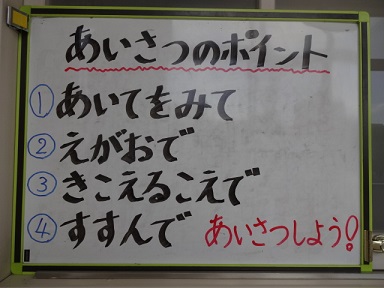 あいさつのポイント
①あいてをみて
②えがおで
③きこえるこえで
④すすんで あいさつしよう!